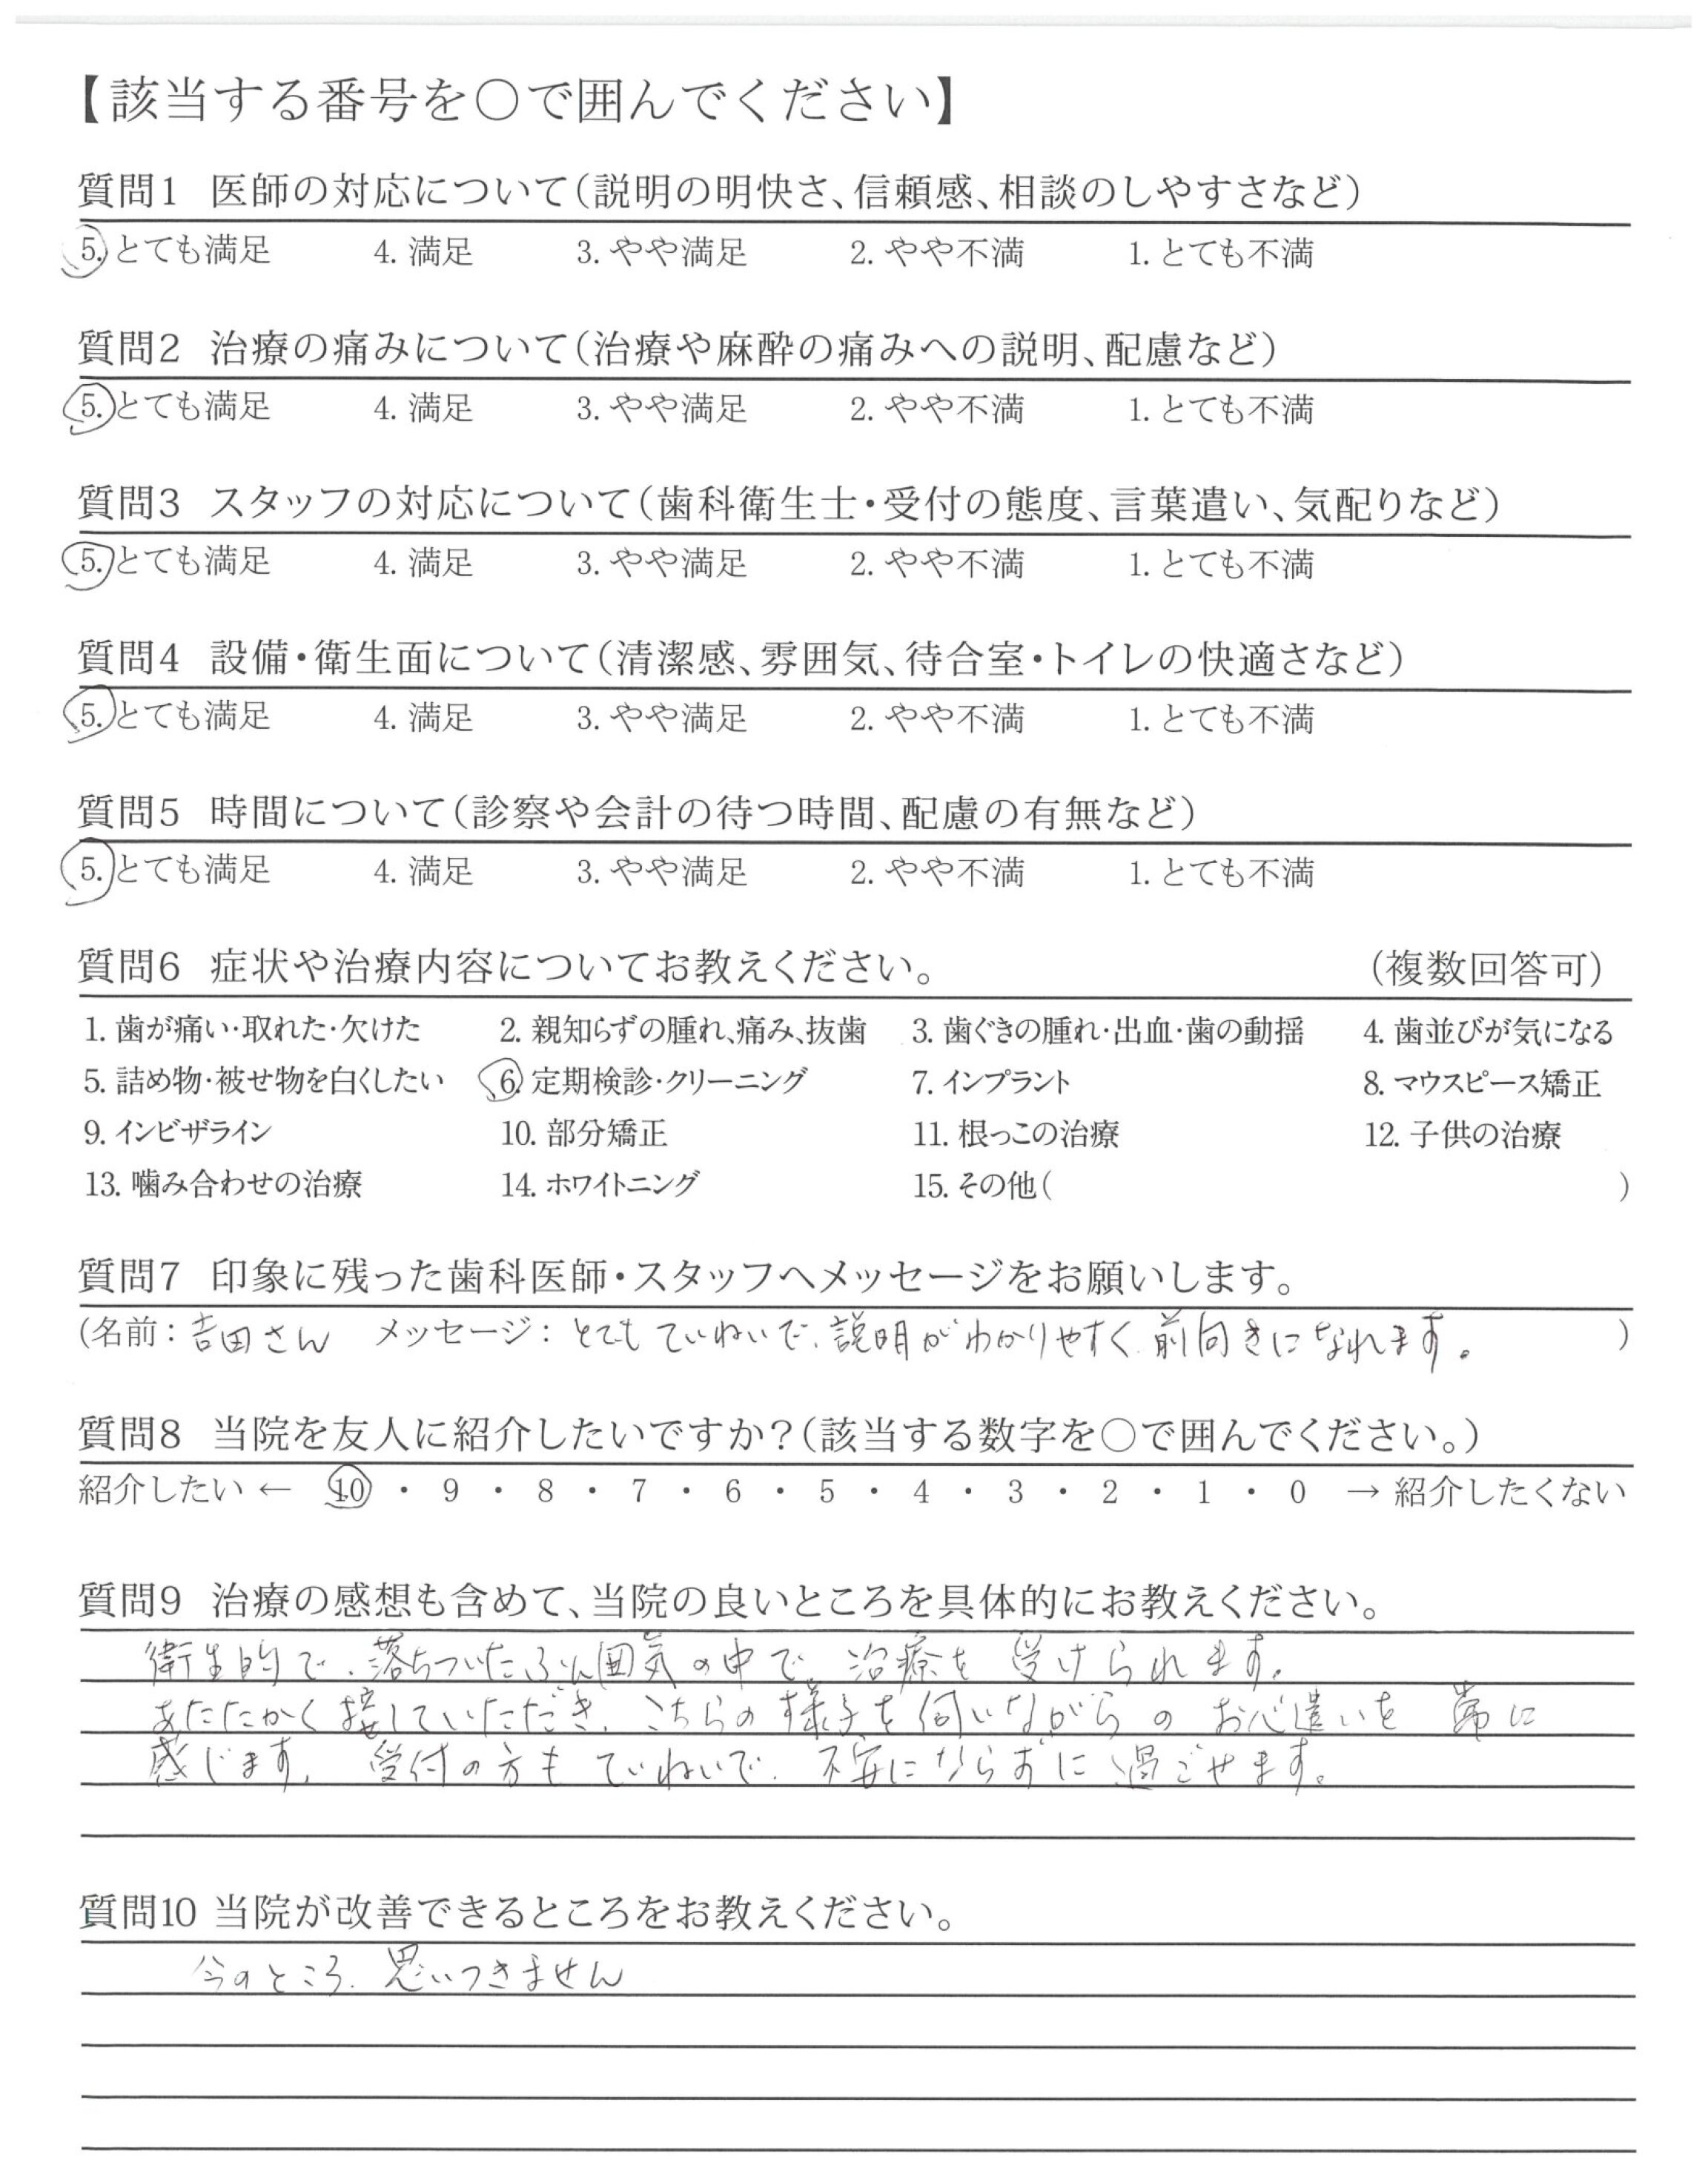 【該当する番号を○で囲んでください】
質問1 医師の対応について（説明の明快さ、信頼感、相談のしやすさなど）
5. とても満足 4. 満足 3. やや満足 2. やや不満 1. とても不満
質問2 治療の痛みについて（治療や麻酔の痛みへの説明、配慮など）
5. とても満足 4. 満足 3. やや満足 2. やや不満 1. とても不満
質問3 スタッフの対応について（歯科衛生士・受付の態度、言葉遣い、気配りなど）
5. とても満足 4. 満足 3. やや満足 2. やや不満 1. とても不満
質問4 設備・衛生面について（清潔感、雰囲気、待合室・トイレの快適さなど）
5. とても満足 4. 満足 3. やや満足 2. やや不満 1. とても不満
質問5 時間について（診察や会計の待つ時間、配慮の有無など）
5. とても満足 4. 満足 3. やや満足 2. やや不満 1. とても不満
質問6 症状や治療内容についてお教えください。 （複数回答可）
1. 歯が痛い・取れた・欠けた 2. 親知らずの腫れ、痛み、抜歯 3. 歯ぐきの腫れ・出血・歯の動揺 4. 歯並びが気になる
5. 詰め物・被せ物を白くしたい 6. 定期検診・クリーニング 7. インプラント 8. マウスピース矯正
9. インビザライン 10. 部分矯正 11. 根っこの治療 12. 子供の治療
13. 噛み合わせの治療 14. ホワイトニング 15. その他（ ）
質問7 印象に残った歯科医師・スタッフへメッセージをお願いします。
（名前：吉田さん メッセージ：とてもていねいで、説明がわかりやすく、前向きになれます。 ）
質問8 当院を友人に紹介したいですか？（該当する数字を○で囲んでください。）
紹介したい ← 10 ・ 9 ・ 8 ・ 7 ・ 6 ・ 5 ・ 4 ・ 3 ・ 2 ・ 1 ・ 0 → 紹介したくない
質問9 治療の感想も含めて、当院の良いところを具体的にお教えください。
衛生的で、落ちついたふん囲気の中で、治療を受けられます。
あたたかく接していただき、こちらの様子を伺いながらのお心遣いを常に
感じます。受付の方もていねいで、不安にならずに過ごせます。
質問10 当院が改善できるところをお教えください。
今のところ、思いつきません